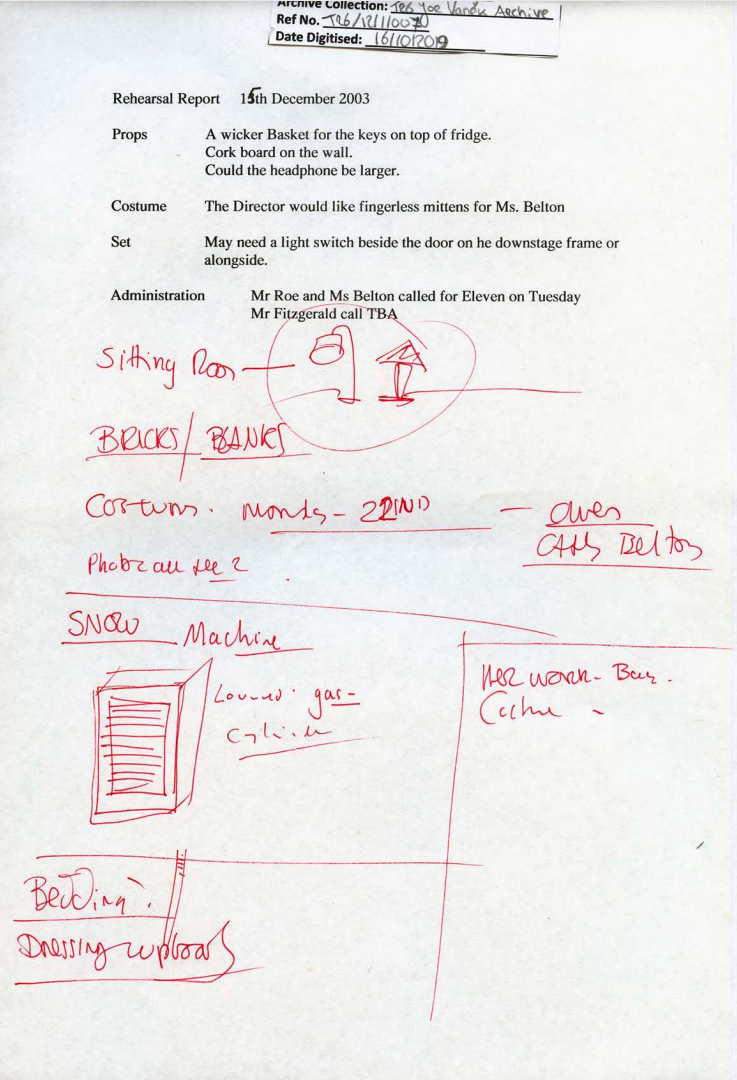 Archive Collection: TRS Joe Vanek Archive
Ref No. TR6/12/1/1007
Date Digitised: 16/10/2019
Rehearsal Report 15th December 2003
Props A wicker Basket for the keys on top of fridge.
Cork board on the wall.
Could the headphone be larger.
Costume The Director would like fingerless mittens for Ms. Belton
Set May need a light switch beside the door on he downstage frame or
alongside.
Administration Mr Roe and Ms Belton called for Eleven on Tuesday
Mr Fitzgerald call TBA
Sitting Room
BRICKS/ BLANKS
22ND
Cathy Belton
SNOW Machine
HER WORK - Bag.
Louvred. gas-
cylinder
Bedding.
Dressing upboard